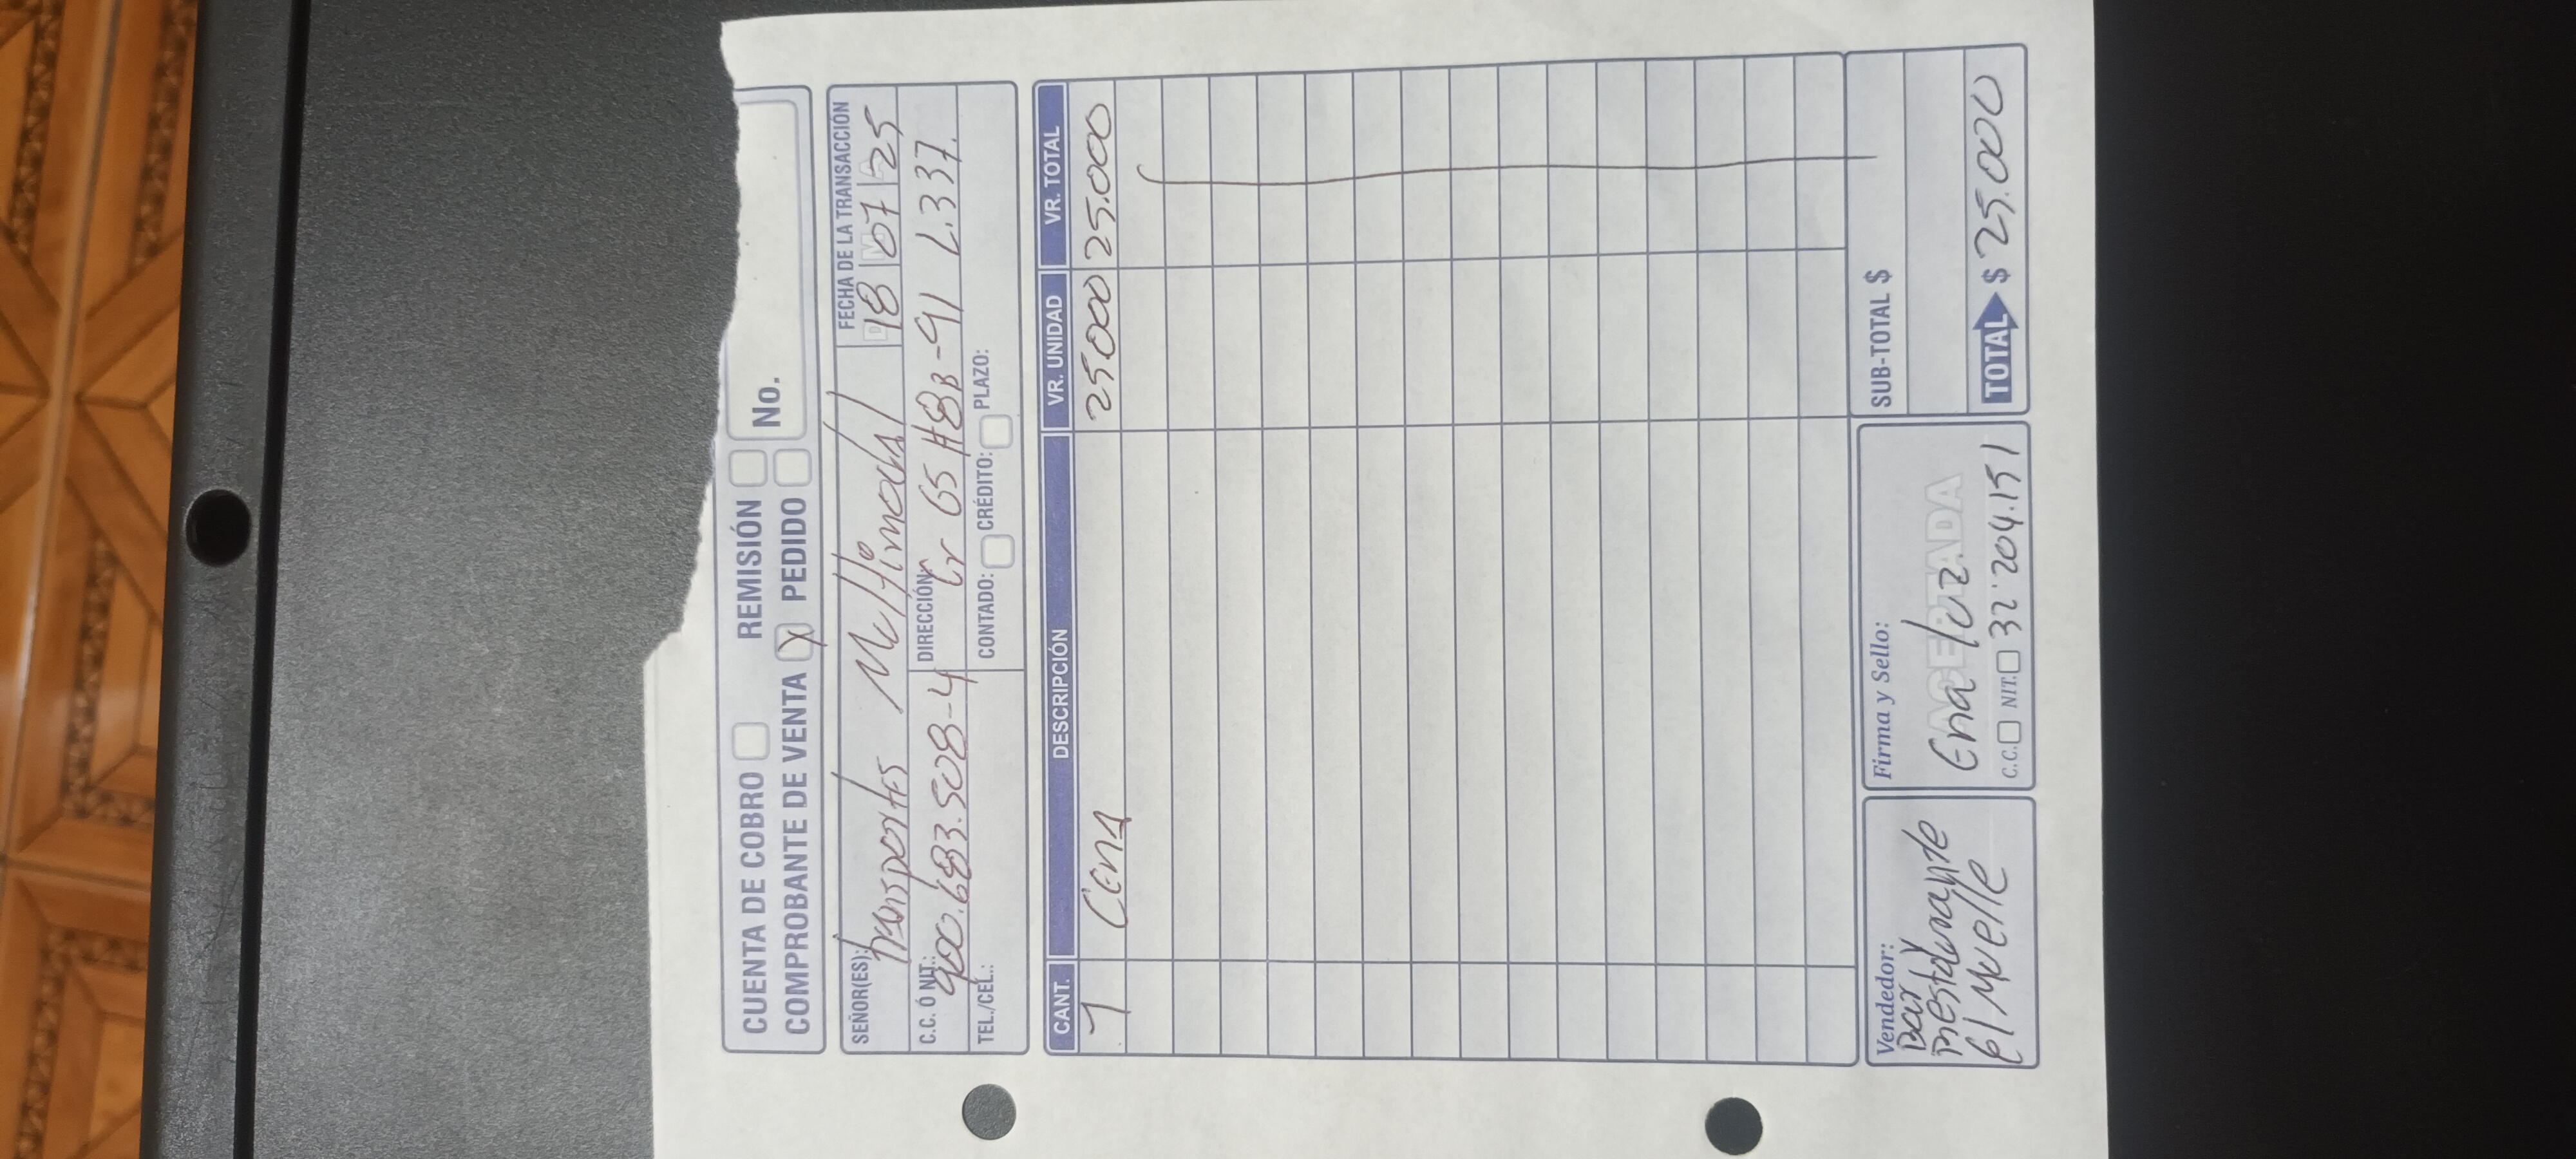 CUENTA DE COBRO REMISIÓN
COMPROBANTE DE VENTA X PEDIDO No.
SEÑOR(ES): Transportes Multimodal
FECHA DE LA TRANSACCIÓN
D 18 M 07 A 25
C.C. Ó NIT.: 900.683.508-4 DIRECCIÓN: Cr 65 #8B-91 L.337.
TEL./CEL.: CONTADO: CRÉDITO: PLAZO:
CANT. DESCRIPCIÓN VR. UNIDAD VR. TOTAL
1 Cena 25000 25.000
Vendedor: Firma y Sello: SUB-TOTAL $
Bar y
Restaurante
El Muelle
ACEPTADA
Ena luz
C.C. NIT. 32'204.151
TOTAL $ 25.000